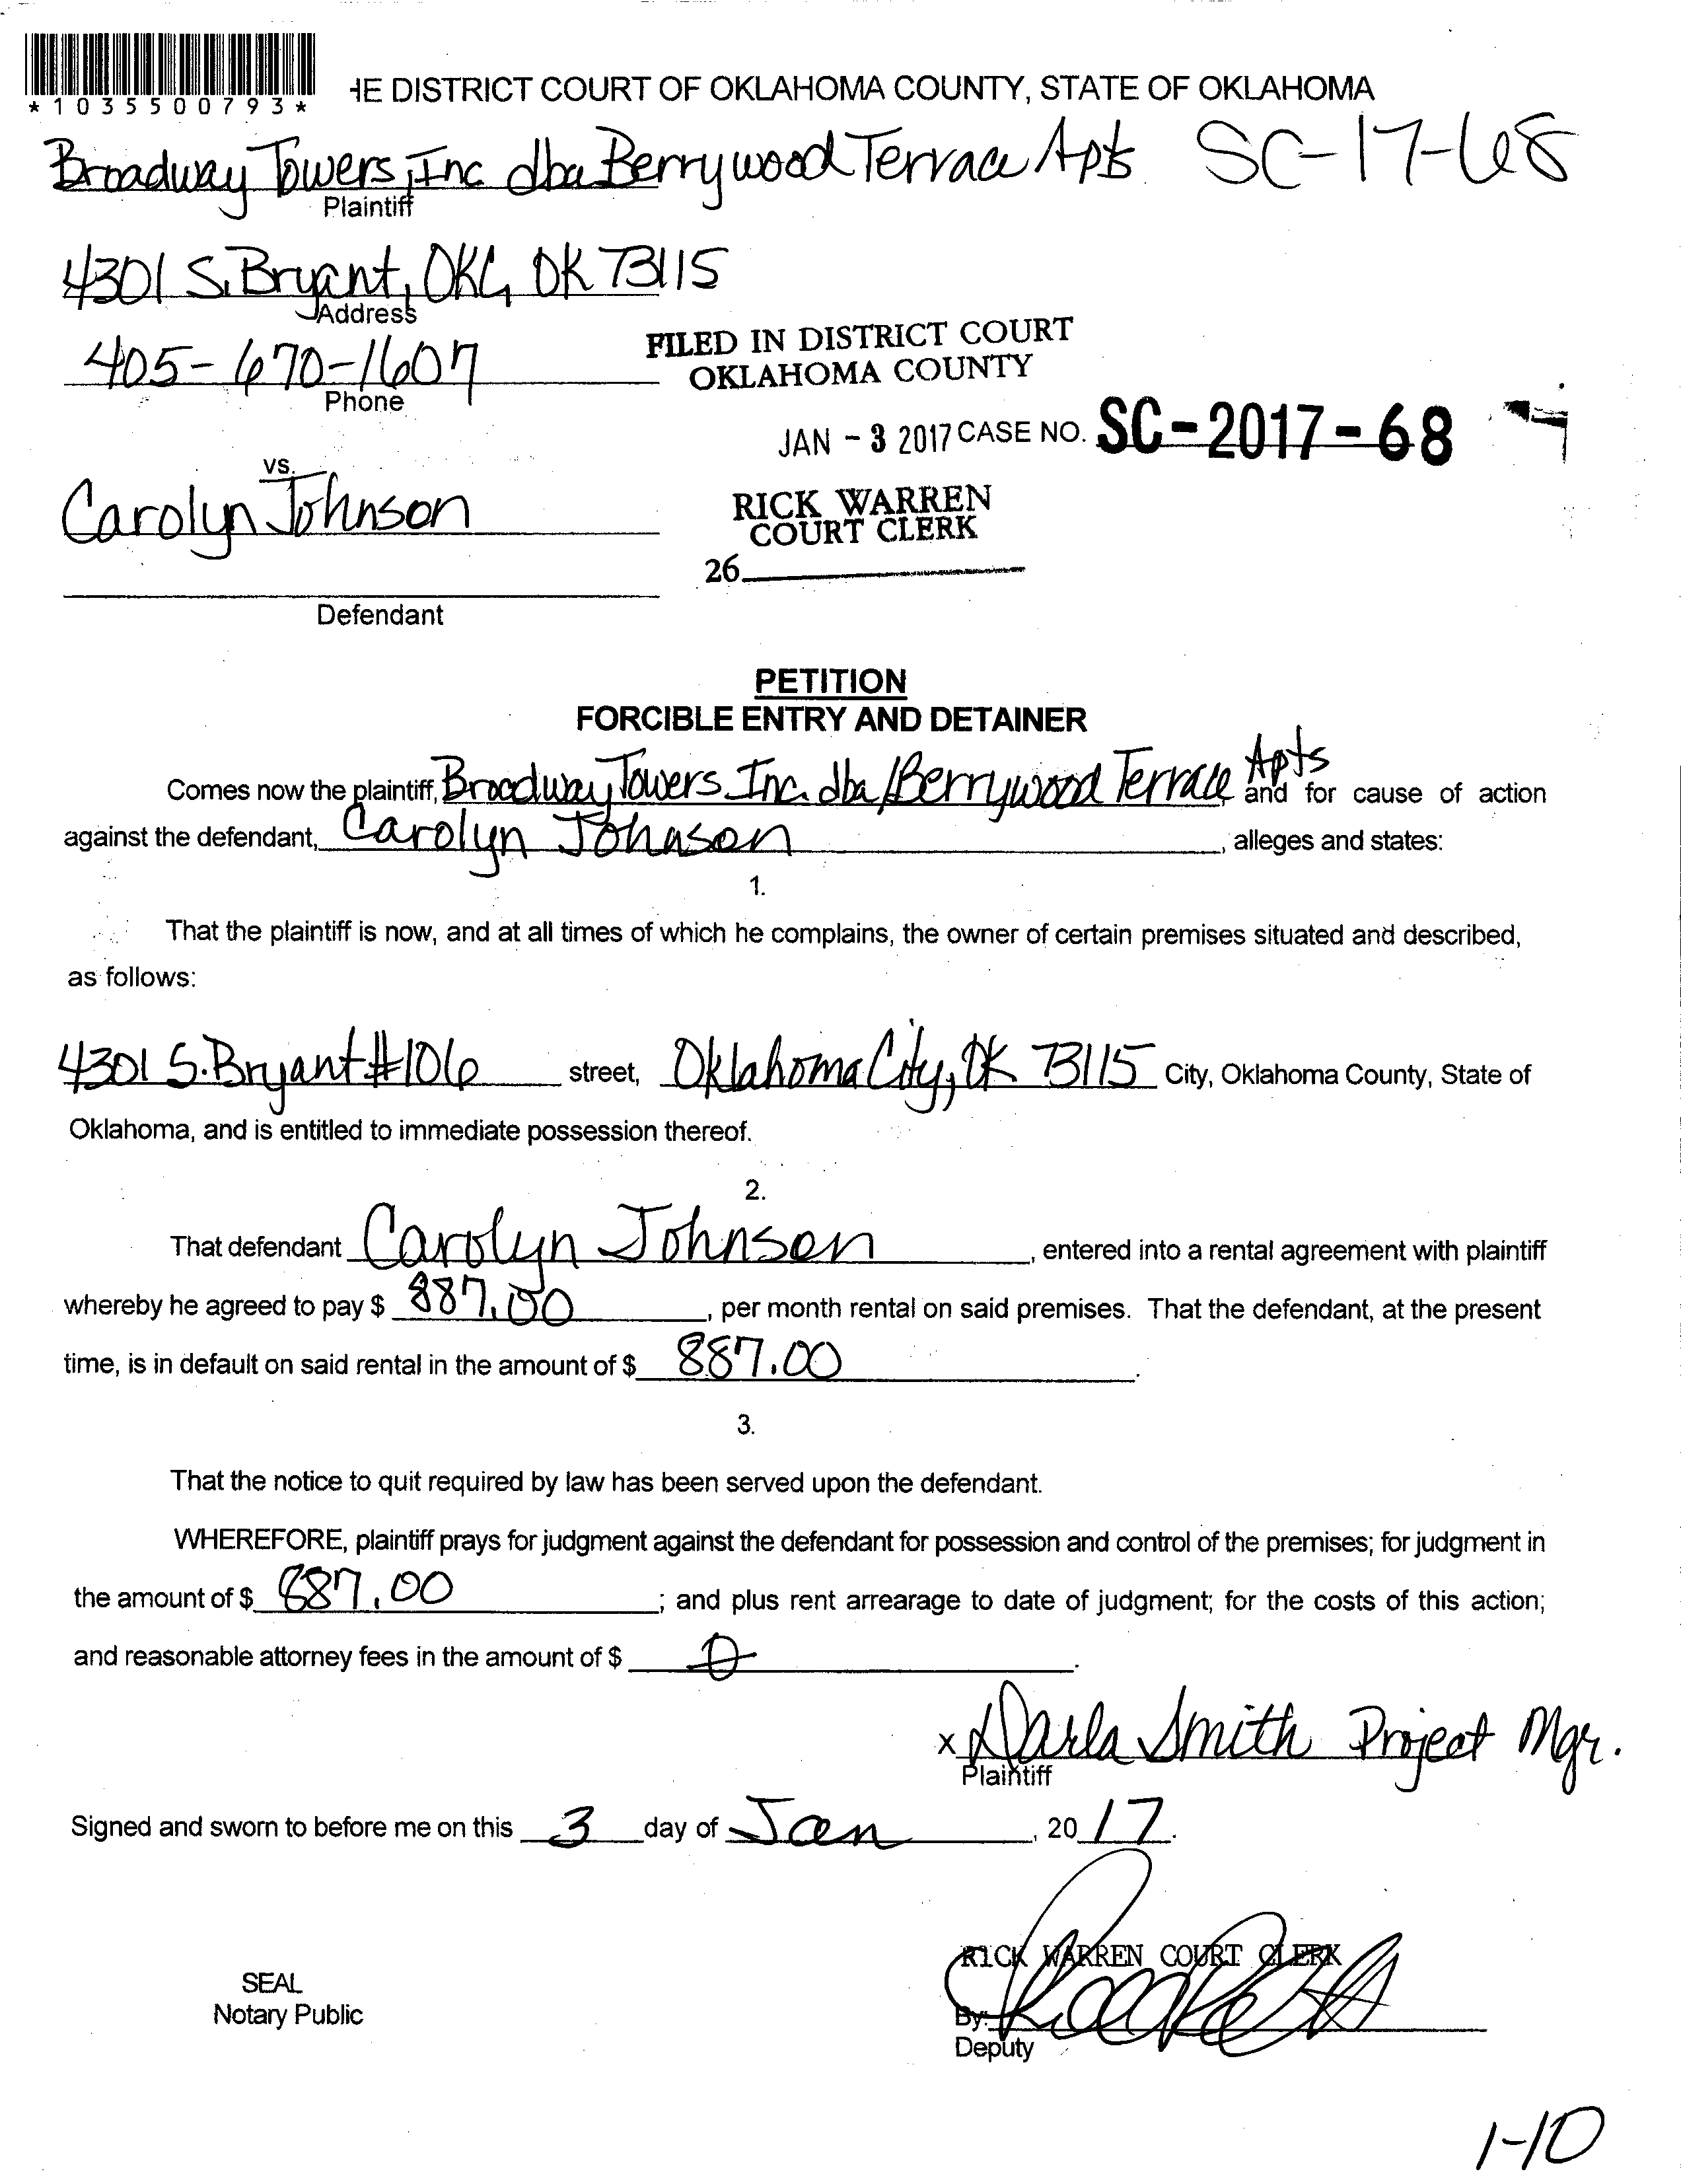 *1035500793*
HE DISTRICT COURT OF OKLAHOMA COUNTY, STATE OF OKLAHOMA
Broadway Towers, Inc dba Berrywood Terrace Apts SC-17-68
Plaintiff
4301 S. Bryant, OKC, OK 73115
Address
405-670-1607
Phone
FILED IN DISTRICT COURT
OKLAHOMA COUNTY
JAN - 3 2017 CASE NO. SC-2017-68
vs.
Carolyn Johnson
RICK WARREN
COURT CLERK
26
Defendant
PETITION
FORCIBLE ENTRY AND DETAINER
Comes now the plaintiff, Broadway Towers Inc. dba/Berrywood Terrace Apts and for cause of action
against the defendant, Carolyn Johnson, alleges and states:
1.
That the plaintiff is now, and at all times of which he complains, the owner of certain premises situated and described,
as follows:
4301 S. Bryant #106 street, Oklahoma City, OK 73115 City, Oklahoma County, State of
Oklahoma, and is entitled to immediate possession thereof.
2.
That defendant Carolyn Johnson, entered into a rental agreement with plaintiff
whereby he agreed to pay $ 887.00, per month rental on said premises. That the defendant, at the present
time, is in default on said rental in the amount of $ 887.00.
3.
That the notice to quit required by law has been served upon the defendant.
WHEREFORE, plaintiff prays for judgment against the defendant for possession and control of the premises; for judgment in
the amount of $ 887.00; and plus rent arrearage to date of judgment; for the costs of this action;
and reasonable attorney fees in the amount of $ 0.
x Darla Smith Project Mgr.
Plaintiff
Signed and sworn to before me on this 3 day of Jan, 2017.
RICK WARREN COURT CLERK
SEAL
Notary Public
By:
Deputy
1-10